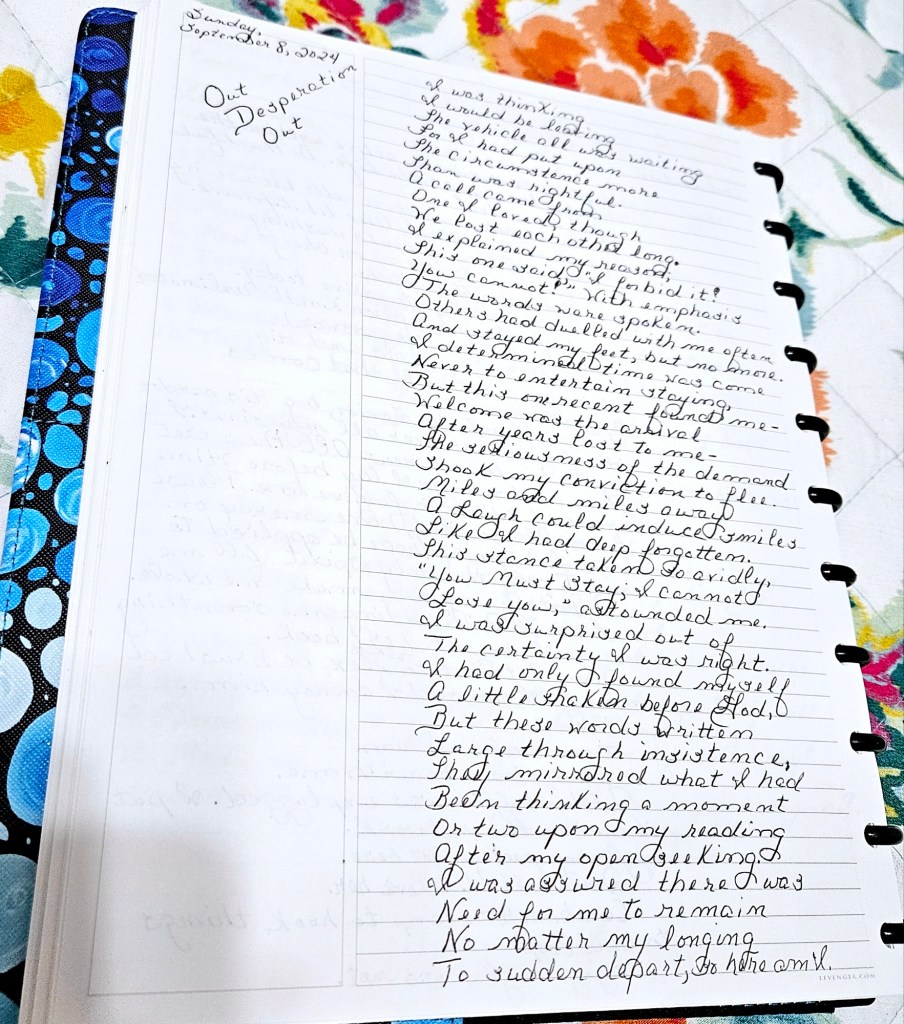 Sunday,
September 8, 2024
Out
Desperation
Out
I was thinking
I would be leaving
The vehicle all was waiting
For I had put upon
The circumstence more
Than was rightful.
A call came from
One I loved, though
We lost each other long.
I explained my reason,
This one said, "I forbid it!
You cannot!" With emphasis
The words were spoken.
Others had duelled with me often
And stayed my feet, but no more.
I determined time was come
Never to entertain staying,
But this one recent found me-
Welcome was the arrival
After years lost to me-
The seriousness of the demand
Shook my conviction to flee.
Miles and miles away
A laugh could induce smiles
Like I had deep forgotten.
This stance taken so avidly,
"You Must Stay; I cannot
Lose you," astounded me.
I was surprised out of
The certainty I was right.
I had only found myself
A little shaken before God,
But these words written
Large through insistence,
They mirrored what I had
Been thinking a moment
Or two upon my reading
After my open seeking.
I was assured there was
Need for me to remain
No matter my longing
To sudden depart, so here am I.
LEVENGER.COM